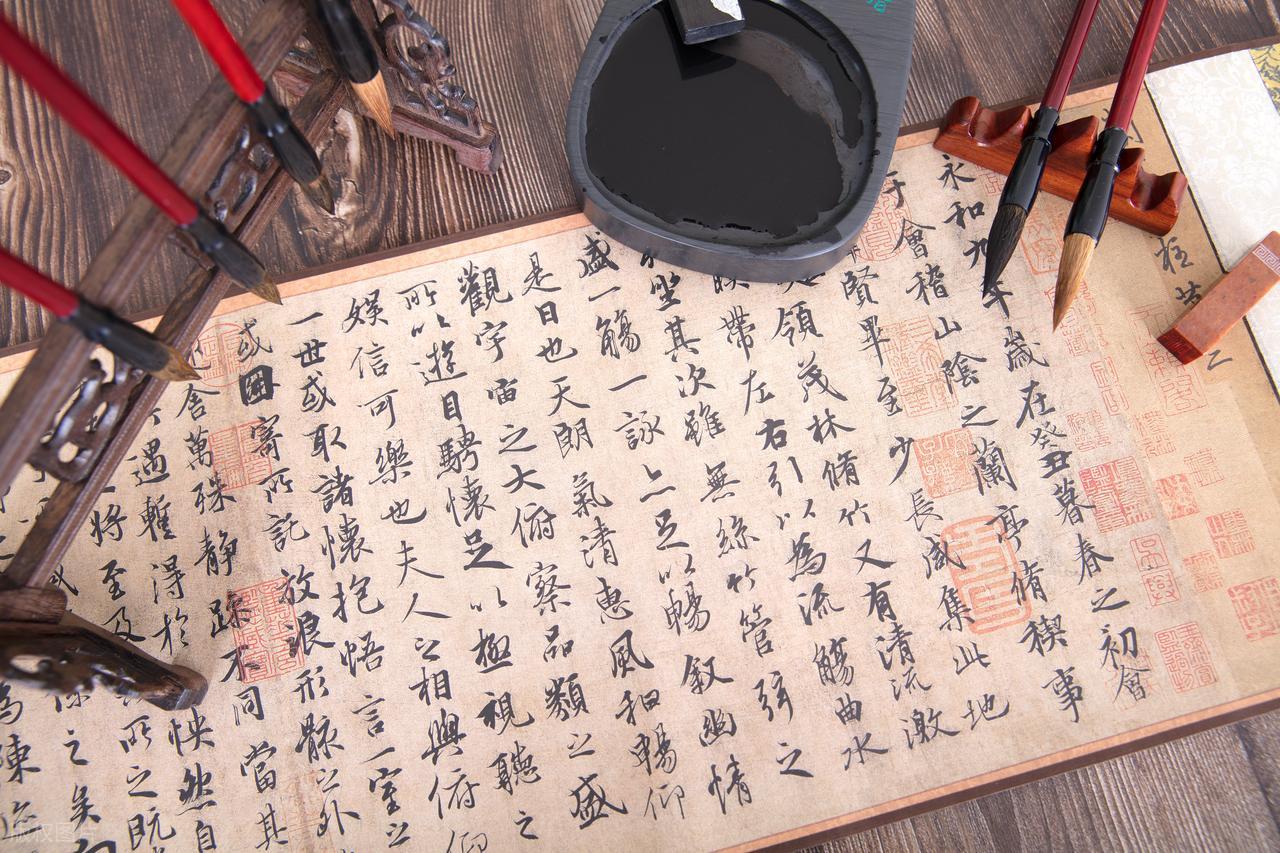 柱
永和九年歲在癸丑暮春之初會
于會稽山陰之蘭亭脩稧事
賢畢至少長咸集此地
領茂林脩竹又有清流激
暎帶左右引以為流觴曲水
坐其次雖無絲竹管弦之
盛一觴一詠亦足以暢敘幽情
是日也天朗氣清惠風和暢仰
觀宇宙之大俯察品類之盛
所以遊目騁懷足以極視聽之
娛信可樂也夫人之相與俯仰
一世或取諸懷抱悟言一室之
或因寄所託放浪形骸之外
舍萬殊静躁不同當其
遇蹔得於怏然自
將至及所之既
係之矣向
為陳